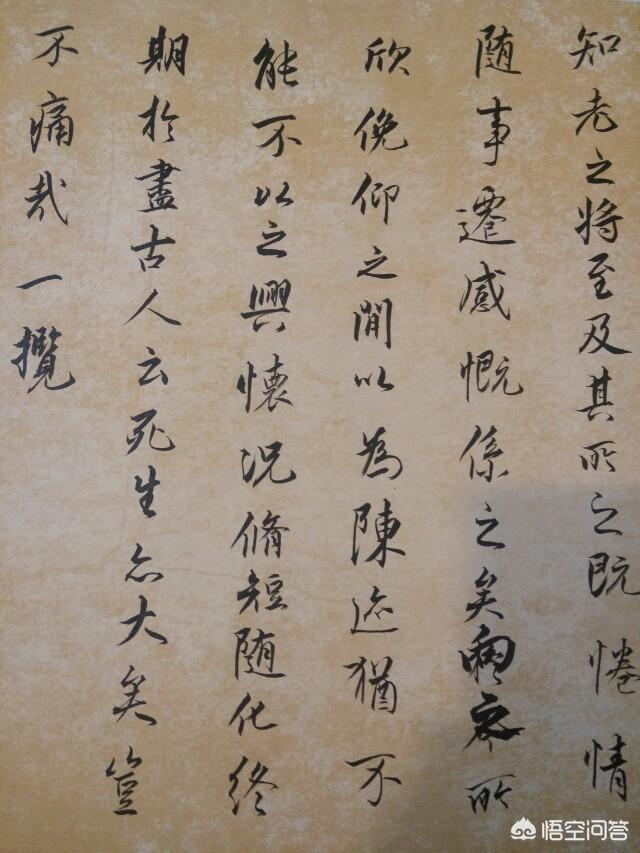 知老之将至及其所之既惓情
随事遷感慨係之矣向之所
欣俛仰之閒以為陳迹猶不
能不以之興懷況脩短随化終
期於盡古人云死生亦大矣豈
不痛哉一攬
悟空问答